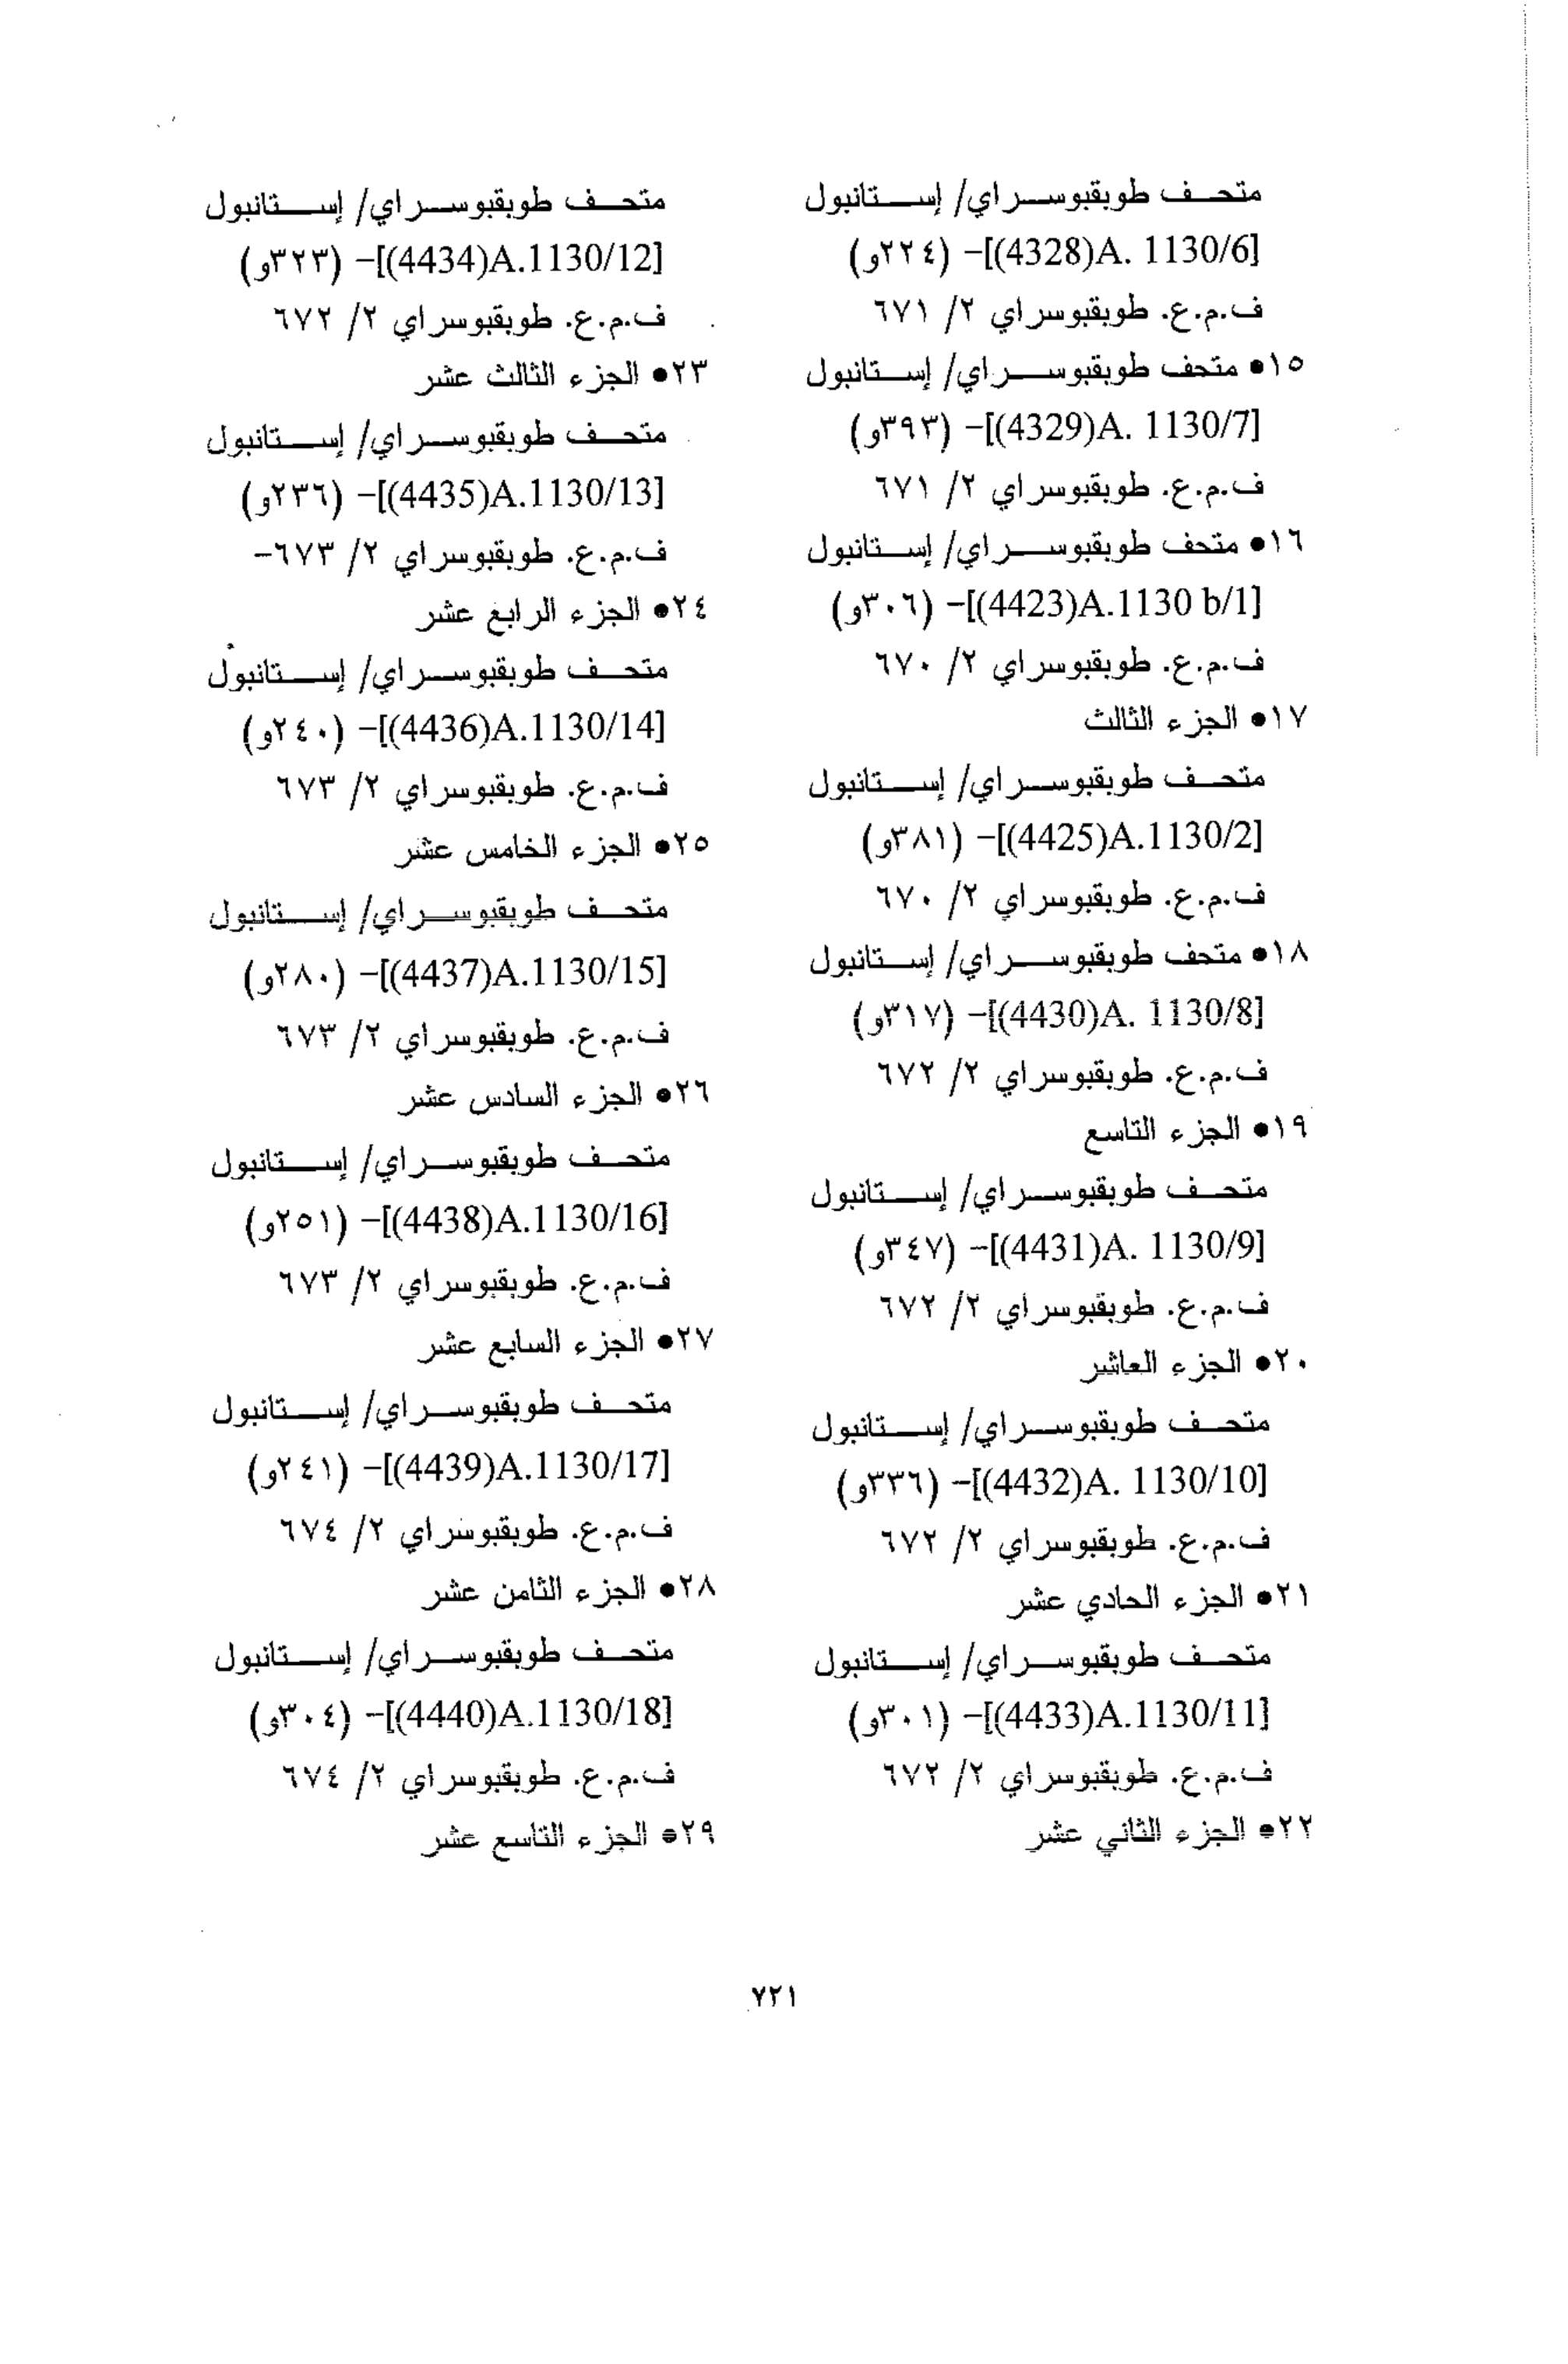 متحف طوبقبوسراي/ إستانبول
[4328)A. 1130/6)]- (٢٢٤و)
ف.م.ع. طوبقبوسراي ٢/ ٦٧١
١٥• متحف طوبقبوسراي/ إستانبول
[4329)A. 1130/7)]- (٣٩٣و)
ف.م.ع. طوبقبوسراي ٢/ ٦٧١
١٦• متحف طوبقبوسراي/ إستانبول
[4423)A.1130 b/1)]- (٣٠٦و)
ف.م.ع. طوبقبوسراي ٢/ ٦٧٠
١٧• الجزء الثالث
متحف طوبقبوسراي/ إستانبول
[4425)A.1130/2)]- (٣٨١و)
ف.م.ع. طوبقبوسراي ٢/ ٦٧٠
١٨• متحف طوبقبوسراي/ إستانبول
[4430)A. 1130/8)]- (٣١٧و)
ف.م.ع. طوبقبوسراي ٢/ ٦٧٢
١٩• الجزء التاسع
متحف طوبقبوسراي/ إستانبول
[4431)A. 1130/9)]- (٣٤٧و)
ف.م.ع. طوبقبوسراي ٢/ ٦٧٢
٢٠• الجزء العاشر
متحف طوبقبوسراي/ إستانبول
[4432)A. 1130/10)]- (٣٣٦و)
ف.م.ع. طوبقبوسراي ٢/ ٦٧٢
٢١• الجزء الحادي عشر
متحف طوبقبوسراي/ إستانبول
[4433)A.1130/11)]- (٣٠١و)
ف.م.ع. طوبقبوسراي ٢/ ٦٧٢
٢٢• الجزء الثاني عشر
متحف طوبقبوسراي/ إستانبول
[4434)A.1130/12)]- (٣٢٣و)
ف.م.ع. طوبقبوسراي ٢/ ٦٧٢
٢٣• الجزء الثالث عشر
متحف طوبقبوسراي/ إستانبول
[4435)A.1130/13)]- (٢٣٦و)
ف.م.ع. طوبقبوسراي ٢/ ٦٧٣-
٢٤• الجزء الرابع عشر
متحف طوبقبوسراي/ إستانبول
[4436)A.1130/14)]- (٢٤٠و)
ف.م.ع. طوبقبوسراي ٢/ ٦٧٣
٢٥• الجزء الخامس عشر
متحف طوبقبوسراي/ إستانبول
[4437)A.1130/15)]- (٢٨٠و)
ف.م.ع. طوبقبوسراي ٢/ ٦٧٣
٢٦• الجزء السادس عشر
متحف طوبقبوسراي/ إستانبول
[4438)A.1130/16)]- (٢٥١و)
ف.م.ع. طوبقبوسراي ٢/ ٦٧٣
٢٧• الجزء السابع عشر
متحف طوبقبوسراي/ إستانبول
[4439)A.1130/17)]- (٢٤١و)
ف.م.ع. طوبقبوسراي ٢/ ٦٧٤
٢٨• الجزء الثامن عشر
متحف طوبقبوسراي/ إستانبول
[4440)A.1130/18)]- (٣٠٤و)
ف.م.ع. طوبقبوسراي ٢/ ٦٧٤
٢٩• الجزء التاسع عشر
٧٢١